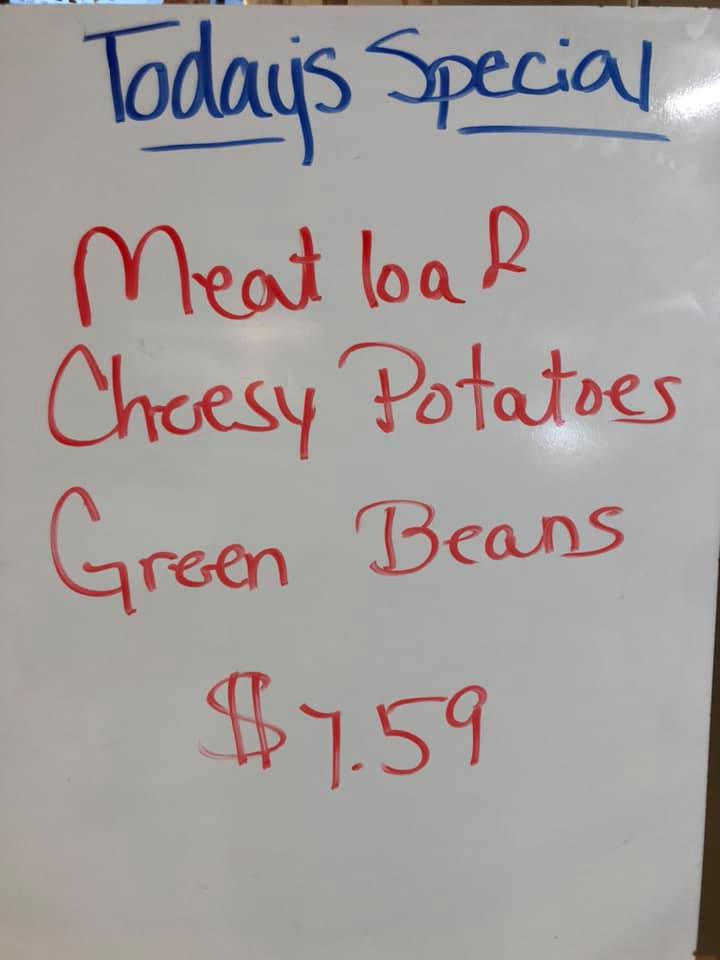 Today's Special
Meat loaf
Cheesy Potatoes
Green Beans
$7.59